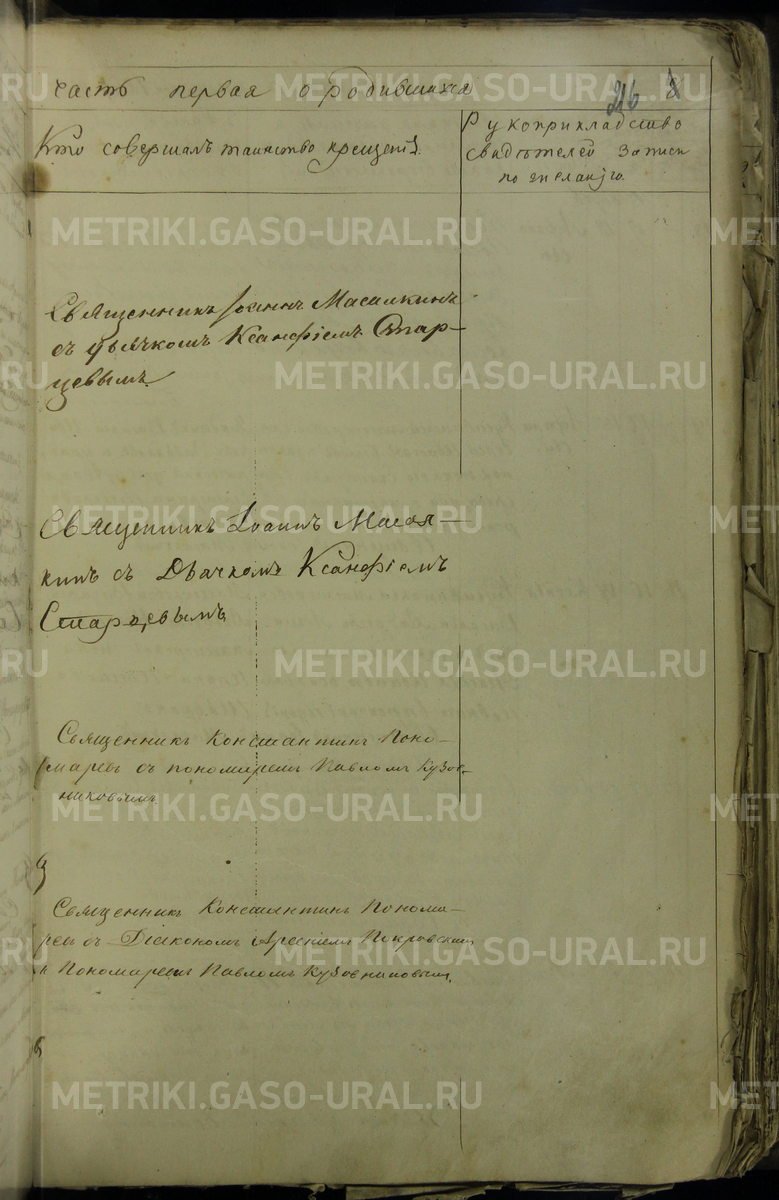 часть первая о родившихся
216
Кто совершалъ таинство крещенія.
Рукоприкладство
свидѣтелей записи
по желанію.
Священникъ Іоаннъ Масалкинъ
съ дьячкомъ Ксанфіемъ Стар-
цевымъ
Священникъ Іоаннъ Масал-
кинъ съ Дьячкомъ Ксанфіемъ
Старцевымъ
Священникъ Константинъ Поно-
маревъ съ пономаремъ Павломъ Кузов-
никовымъ
Священникъ Константинъ Понома-
ревъ съ Діакономъ Арсеніемъ Покровскимъ
и Пономаремъ Павломъ Кузовниковымъ.
METRIKI.GASO-URAL.RU